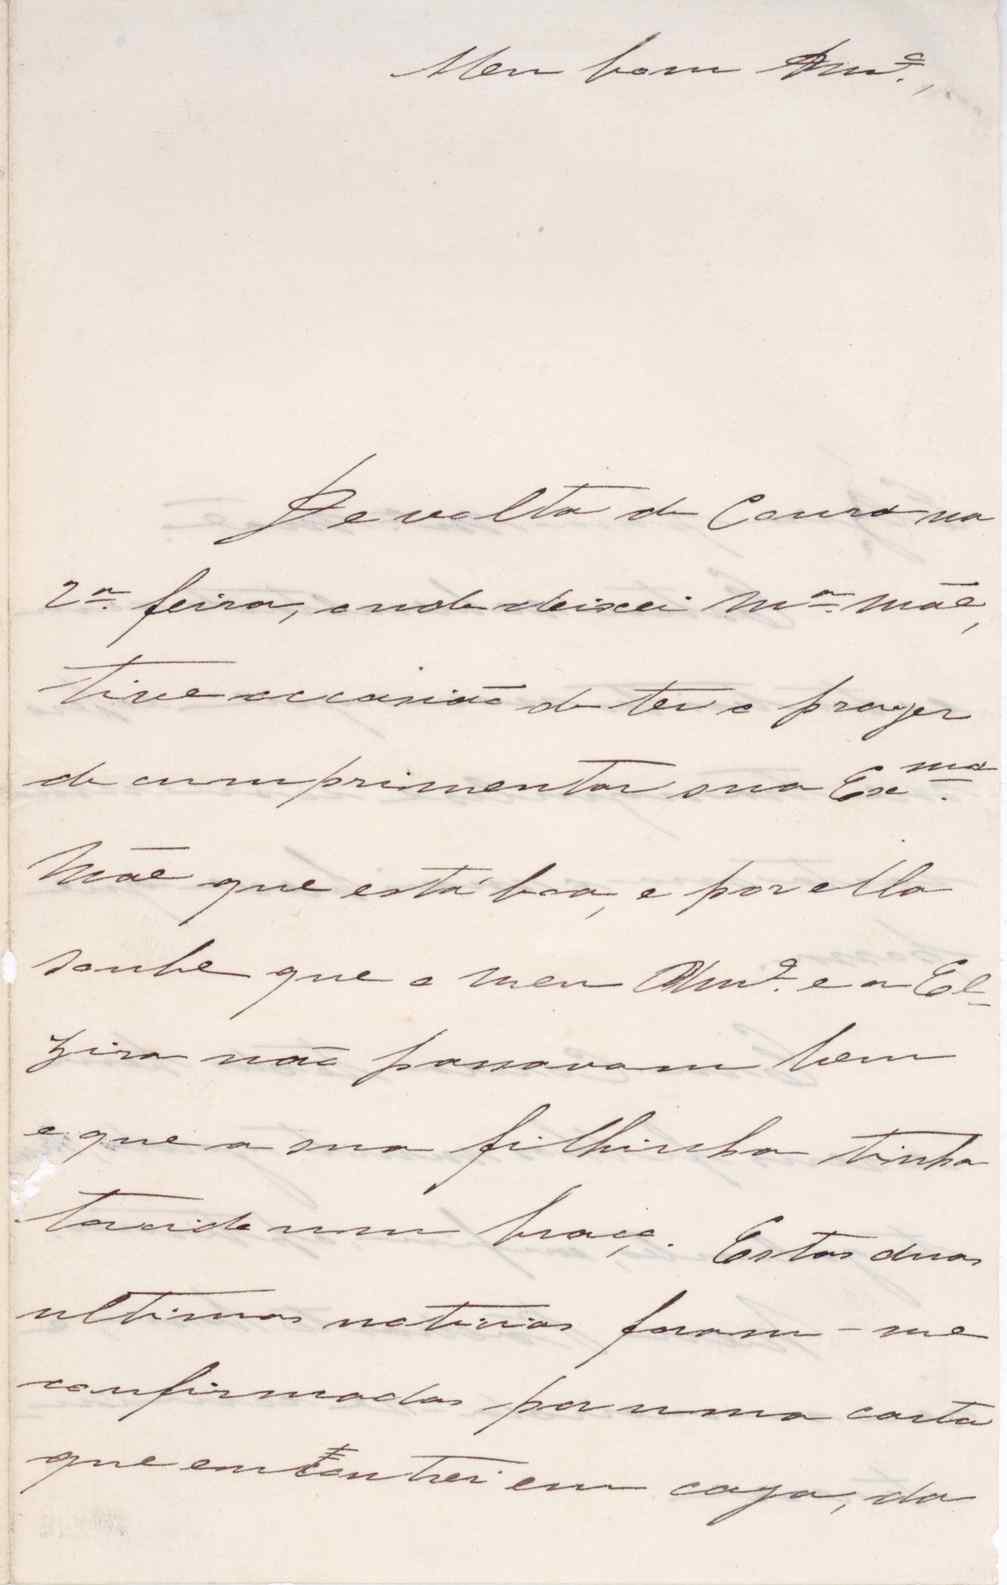 Meu bom Am.º,
De volta de Coura na
2ª. feira, onde deixei M.ª Mãe,
tive occasião de ter o prazer
de cumprimentar sua Ex.ma
Mãe que está boa, e por ella
soube que o meu Am.º e a El-
zira não passavam bem
e que a sua filhinha tinha
torcido um braço. Estas duas
ultimas noticias foram-me
confirmadas por uma carta
que encontrei em caza, da